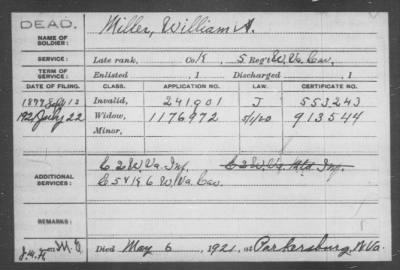 DEAD.
NAME OF SOLDIER: Miller, William A.
SERVICE: Late rank, Co K, 5 Reg't W. Va. Cav.
TERM OF SERVICE: Enlisted , 1 Discharged , 1
DATE OF FILING. CLASS. APPLICATION NO. LAW. CERTIFICATE NO.
Invalid, 241901 J 553243
1921 July 22 Widow, 1176972 5/1/20 913544
Minor,
ADDITIONAL SERVICES: E 2 W. Va. Inf. E 2 W. Va. Mtd. Inf.
E 5 & K 6 W. Va. Cav.
REMARKS:
Died May 6, 1921, at Parkersburg, W Va.